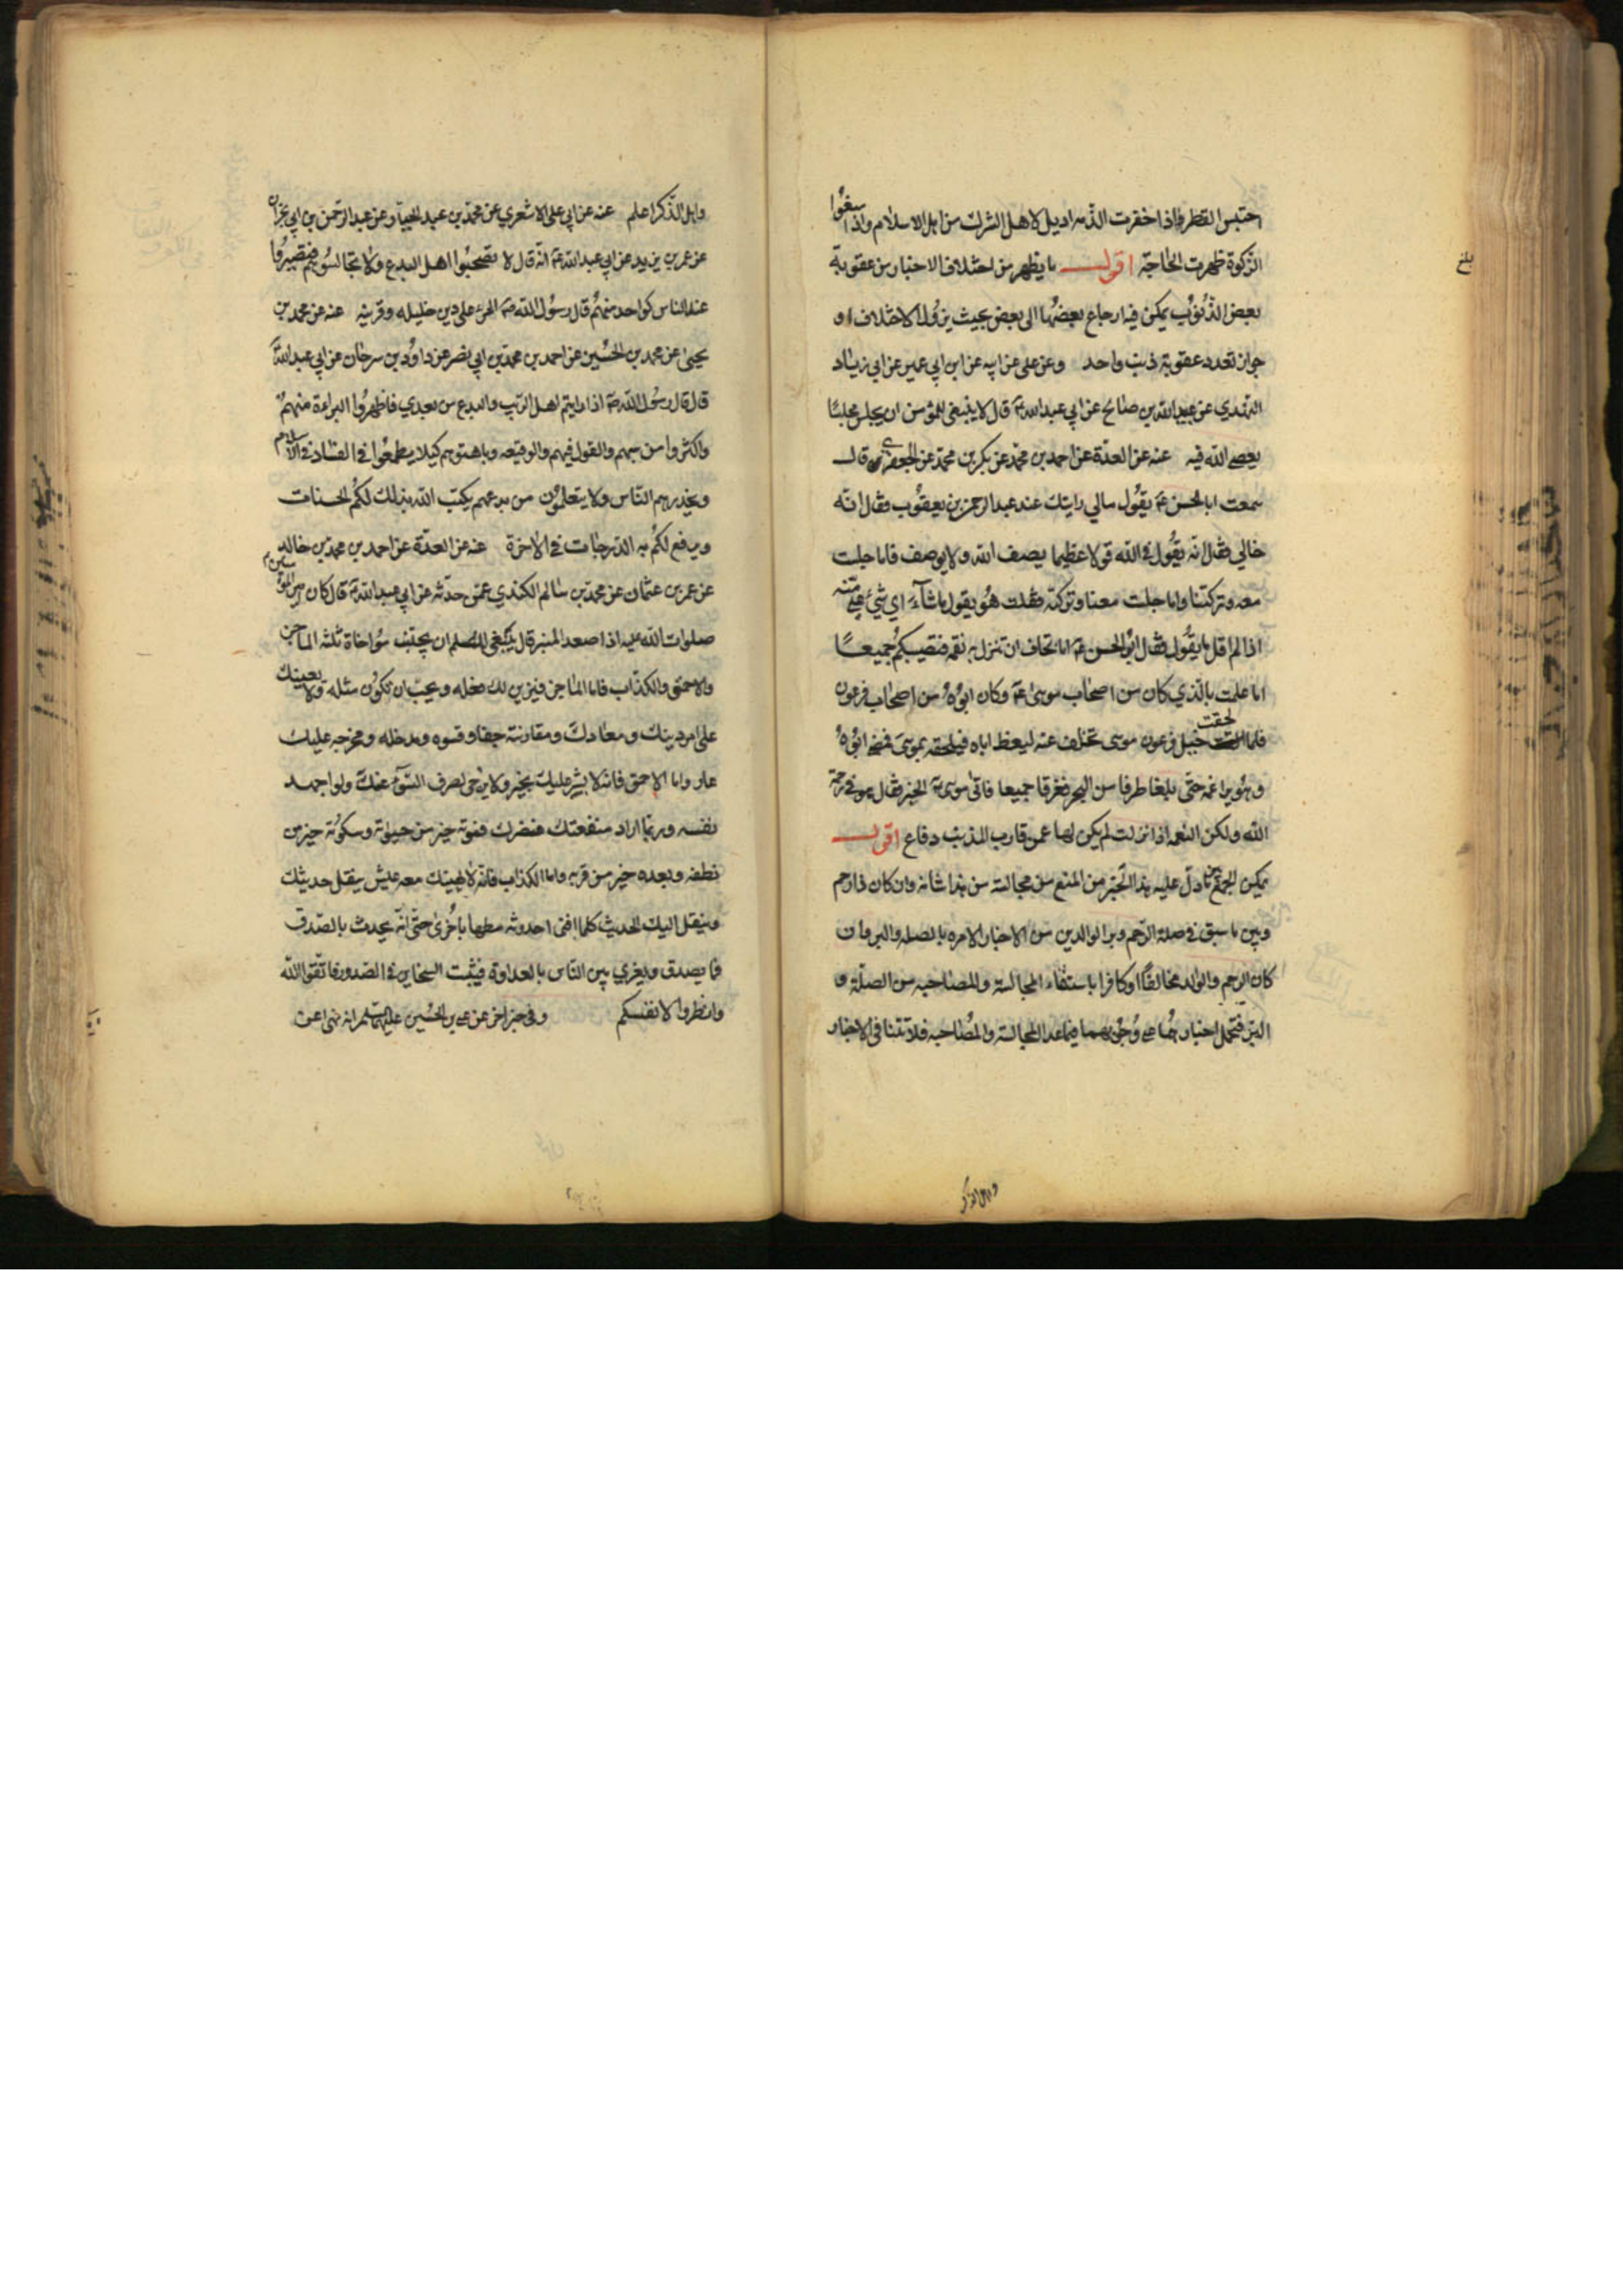 احتبس القطر واذا خفرت الذمه اديل لاهل الشرك من اهل الاسلام واذا منعوا
الزكوة ظهرت الحاجة اقول ما يظهر من اختلاف الاخبار من عقوبة
بعض الذنوب يمكن فيه ارجاع بعضها الى بعض بحيث يزول الاختلاف او
جواز تعدد عقوبة ذنب واحد وعن علي عن ابيه عن ابن ابي عمير عن ابي زياد
النهدي عن عبدالله بن صالح عن ابي عبدالله ع قال لا ينبغي للمؤمن ان يجلس مجلسا
يعصى الله فيه عنه عن العدة عن احمد بن محمد عن بكر بن محمد عن الجعفري قال
سمعت ابا الحسن ع يقول مالي رايتك عند عبد الرحمن بن يعقوب فقال انه
خالي فقال انه يقول في الله قولا عظيما يصف الله ولا يوصف فاما جلست
معه وتركتنا واما جلست معنا وتركته فقلت هو يقول ما شاء اي شيء علي منه
اذا لم اقل ما يقول فقال ابو الحسن ع اما تخاف ان تنزل به نقمه فتصيبكم جميعا
اما علمت بالذي كان من اصحاب موسى ع وكان ابوه من اصحاب فرعون
فلما لحقت خيل فرعون موسى تخلف عنه ليعظ اباه فيلحقه بموسى فمضى ابوه
وهو يراغمه حتى بلغا طرفا من البحر فغرقا جميعا فاتى موسى ع الخبر فقال هو في رحمة
الله ولكن النقمه اذا نزلت لم يكن لها عمن قارب المذنب دفاع اقول
يمكن الجمع بين ما دل عليه هذا الخبر من المنع من مجالسة من هذا شانه وان كان ذا رحم
وبين ما سبق في صلة الرحم وبر الوالدين من الاخبار الامره بالصله والبر وان
كان الرحم والوالد مخالفا او كافرا باستثناء المجالسة والمصاحبه من الصلة و
البر فتحمل اخبارهما على وجوبهما فيما عدا المجالسة والمصاحبه فلا تتنافى الاخبار
واهل الذكر
واهل الذكر اعلم عنه عن ابي علي الاشعري عن محمد بن عبد الجبار وعن عبد الرحمن بن ابي نجران
عن عمر بن يزيد عن ابي عبدالله ع انه قال لا تصحبوا اهل البدع ولا تجالسوهم فتصيروا
عند الناس كواحد منهم قال رسول الله ص المرء على دين خليله وقرينه عنه عن محمد بن
يحيى عن محمد بن الحسين عن احمد بن محمد بن ابي نصر عن داود بن سرحان عن ابي عبد الله ع
قال قال رسول الله ص اذا رايتم اهل الريب والبدع من بعدي فاظهروا البراءة منهم
واكثروا من سبهم والقول فيهم والوقيعه وباهتوهم كيلا يطمعوا في الفساد في الاسلام
ويحذرهم الناس ولا يتعلمون من بدعهم يكتب الله بذلك لكم الحسنات
ويرفع لكم به الدرجات في الاخرة عنه عن العدة عن احمد بن محمد بن خالد
عن عمر بن عثمان عن محمد بن سالم الكندي عمن حدثه عن ابي عبد الله ع قال كان امير المؤمنين
صلوات الله عليه اذا صعد المنبر قال ينبغي للمسلم ان يجتنب مواخاة ثلثه الماجن
والاحمق والكذاب فاما الماجن فيزين لك فعله ويحب ان تكون مثله ولا يعينك
على امر دينك ومعادك ومقارنته جفا وقسوه ومدخله ومخرجه عليك
عار واما الاحمق فانه لا يشير عليك بخير ولا يرجى لصرف السوء عنك ولو اجهد
نفسه وربما اراد منفعتك فضرك فموته خير من حياته وسكوته خير من
نطقه وبعده خير من قربه واما الكذاب فانه لا يهنيك معه عيش ينقل حديثك
وينقل اليك الحديث كلما افنى احدوثه مطها باخرى حتى انه يحدث بالصدق
فما يصدق ويغري بين الناس بالعداوة فيثبت السخاين في الصدور فاتقوا الله
وانظروا لانفسكم وفي خبر اخر عن علي بن الحسين عليهما السلم انه نهى عن